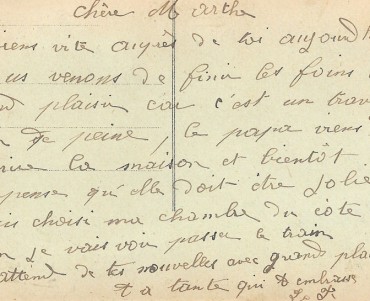 Chère Marthe
viens vite auprès de toi aujourd'h
us venons de finir les foins
d plaisir car c'est un trav
de peine, le papa viens
la maison et bientôt
pense qu'elle doit être jolie
is choisi ma chambre du côté
je vais voir passer le train
attend de tes nouvelles avec grand plai
ta tante qui t'embrasse